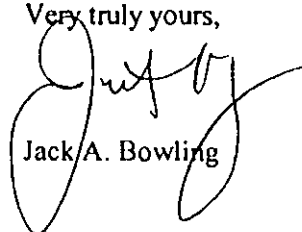 Very truly yours,
Jack A. Bowling